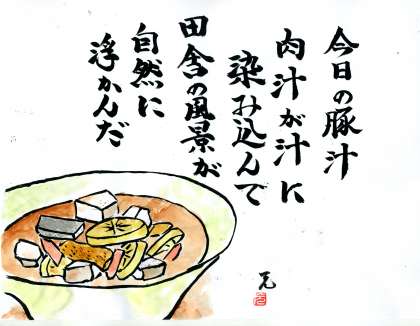 今日の豚汁
肉汁が汁に
染み込んで
田舎の風景が
自然に
浮かんだ